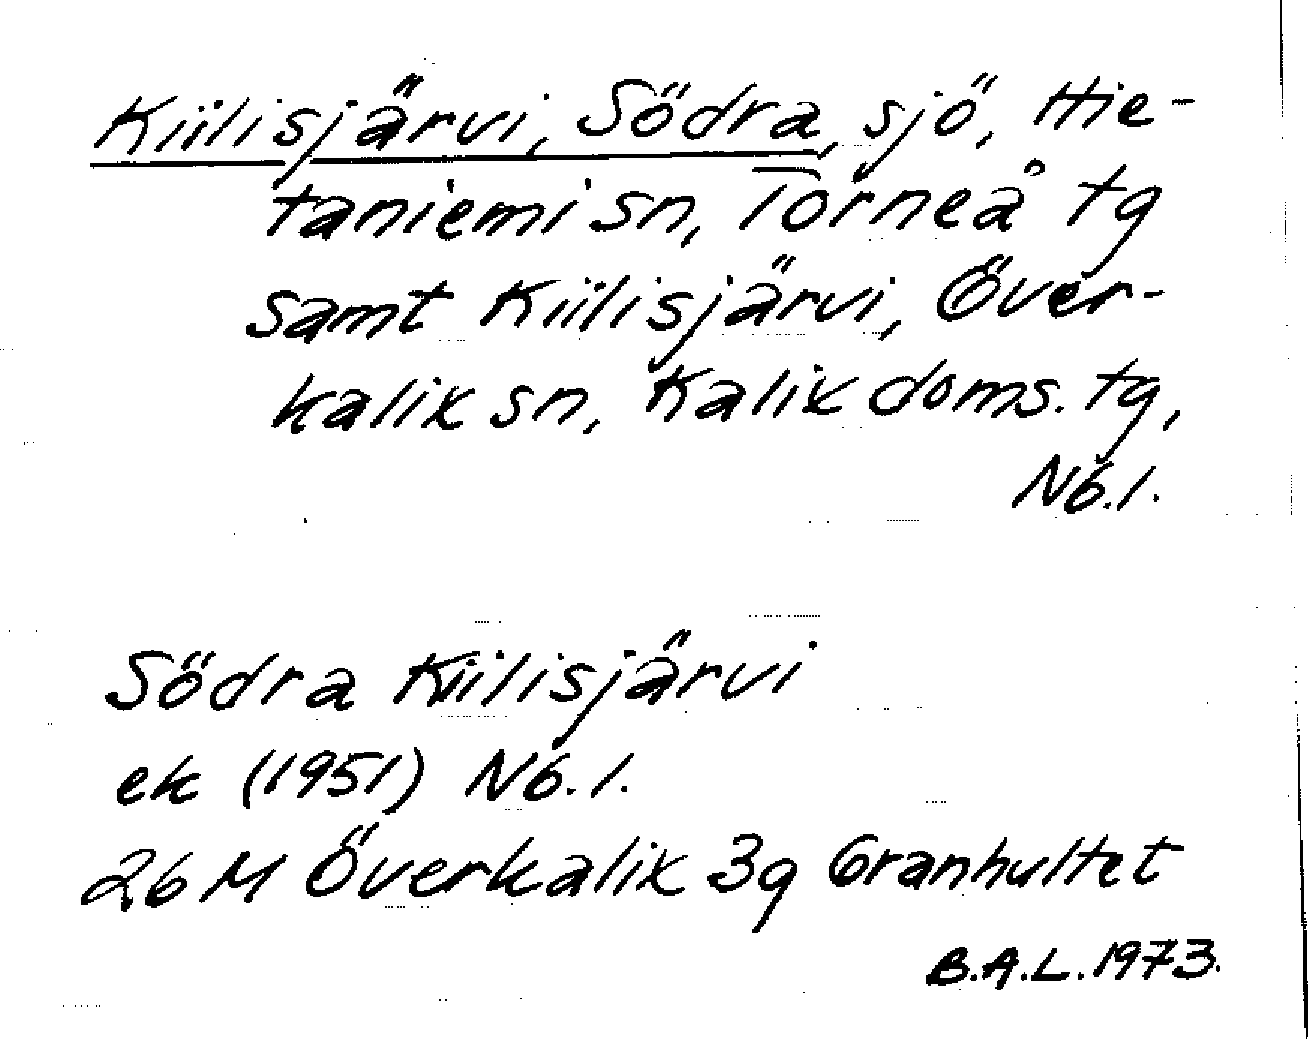 Kiilisjärvi, Södra, sjö, Hie-
taniemi sn, Torneå tg
samt Kiilisjärvi, Över-
kalix sn, Kalix doms. tg,
Nb.l.
Södra Kiilisjärvi
ek (1951) Nb.l.
26 M Överkalix 3g Granhultet
B.A.L. 1973.